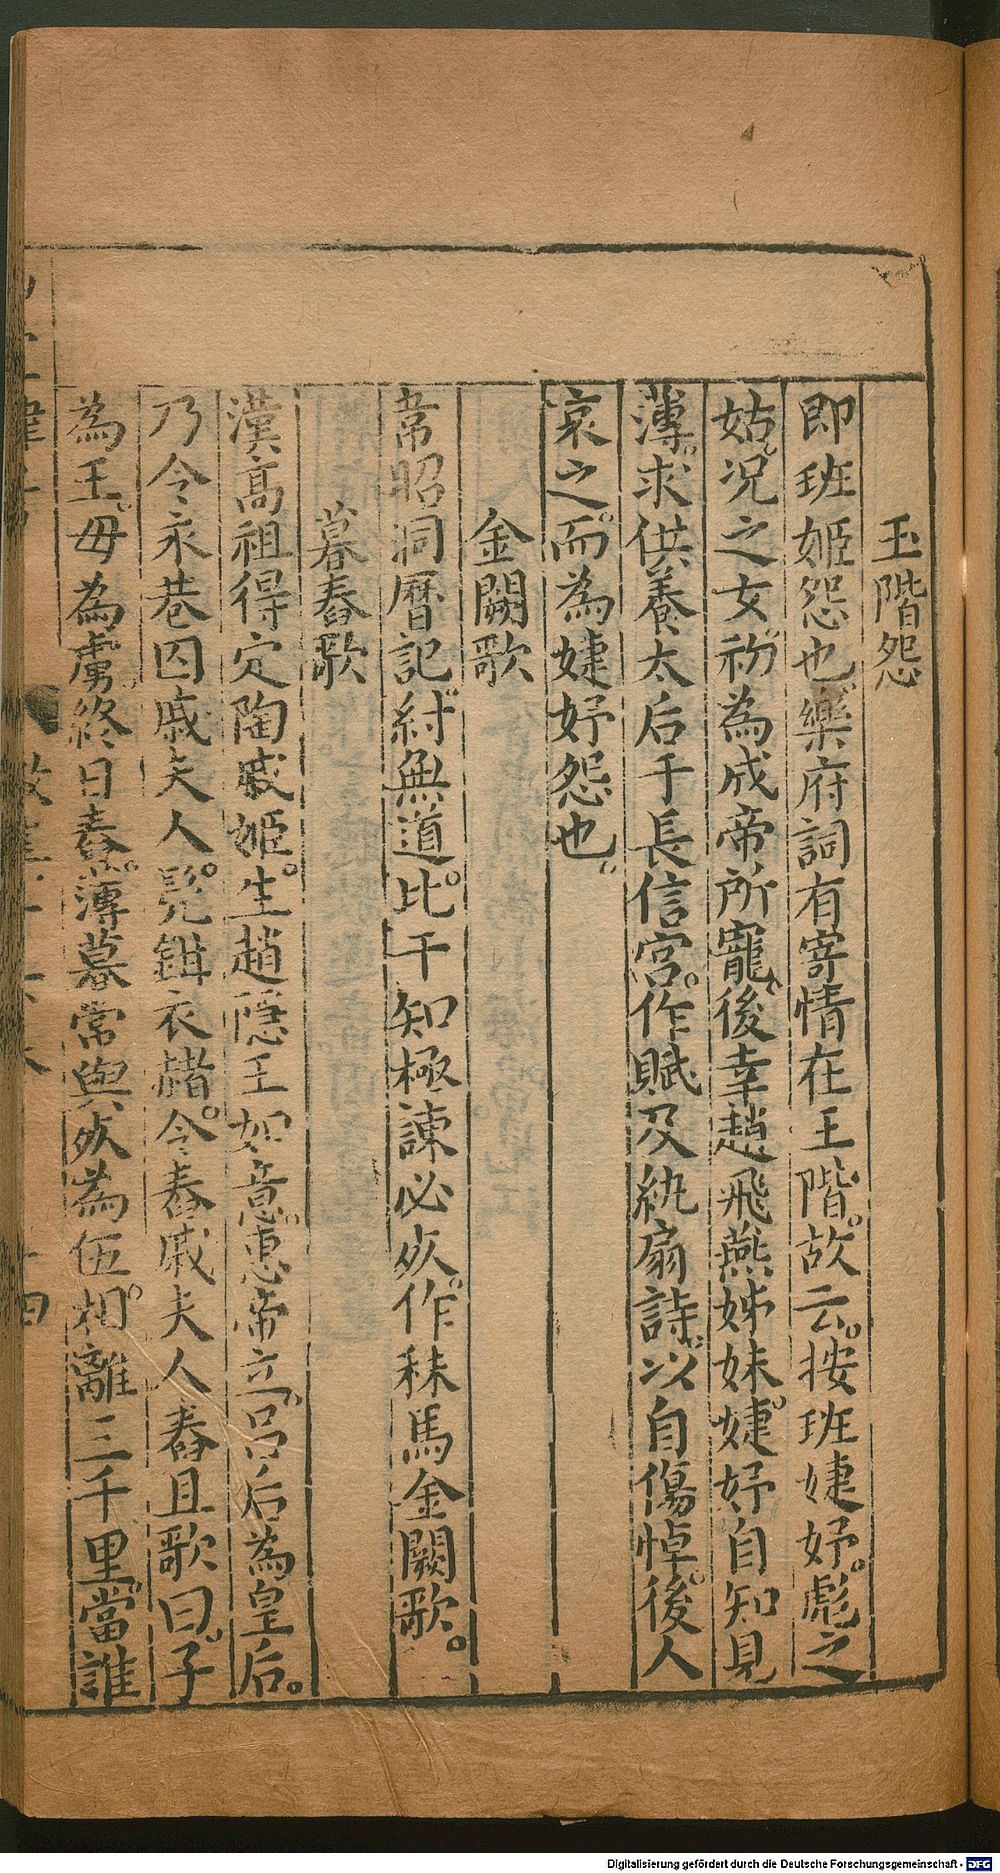 玉階怨
即班姬怨也。樂府詞有寄情在玉階。故云。按班婕妤。彪之
姑。况之女。初為成帝所寵。後幸趙飛燕姊妹。婕妤自知見
薄。求供養太后于長信宮。作賦及紈扇詩。以自傷悼。後人
哀之。而為婕妤怨也。
金闕歌
帝昭洞曆記。紂無道。比干知極諫必死。作秣馬金闕歌。
暮舂歌
漢高祖得定陶戚姬。生趙隱王如意。惠帝立。呂后為皇后。
乃令永巷囚戚夫人。髡鉗衣赭。令舂。戚夫人舂且歌曰。子
為王。母為虜。終日舂。薄暮常與死為伍。相離三千里。當誰
Digitalisierung gefördert durch die Deutsche Forschungsgemeinschaft - DFG